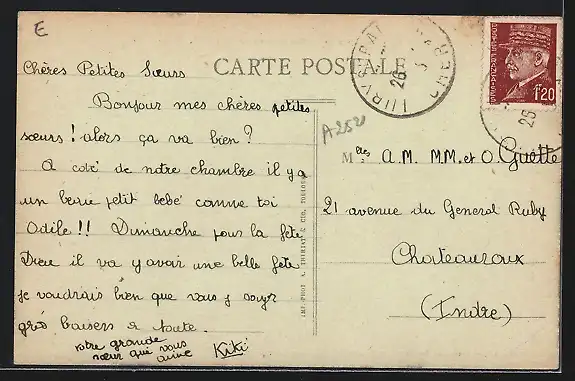 E
CARTE POSTALE
Chères Petites Sœurs
Bonjour mes chères petites
sœurs ! alors ça va bien ?
A coté de notre chambre il y a
un beau petit bébé comme toi
Odile !! Dimanche pour la fête
Dieu il va y avoir une belle fête
je voudrais bien que vous y soyez
gros baisers a toute.
votre grande
sœur qui vous
aime Kiki
A2520
Mlles A.M. MM. et O. Guette
21 avenue du General Ruby
Chateauroux
(Indre)
26
26
1F20